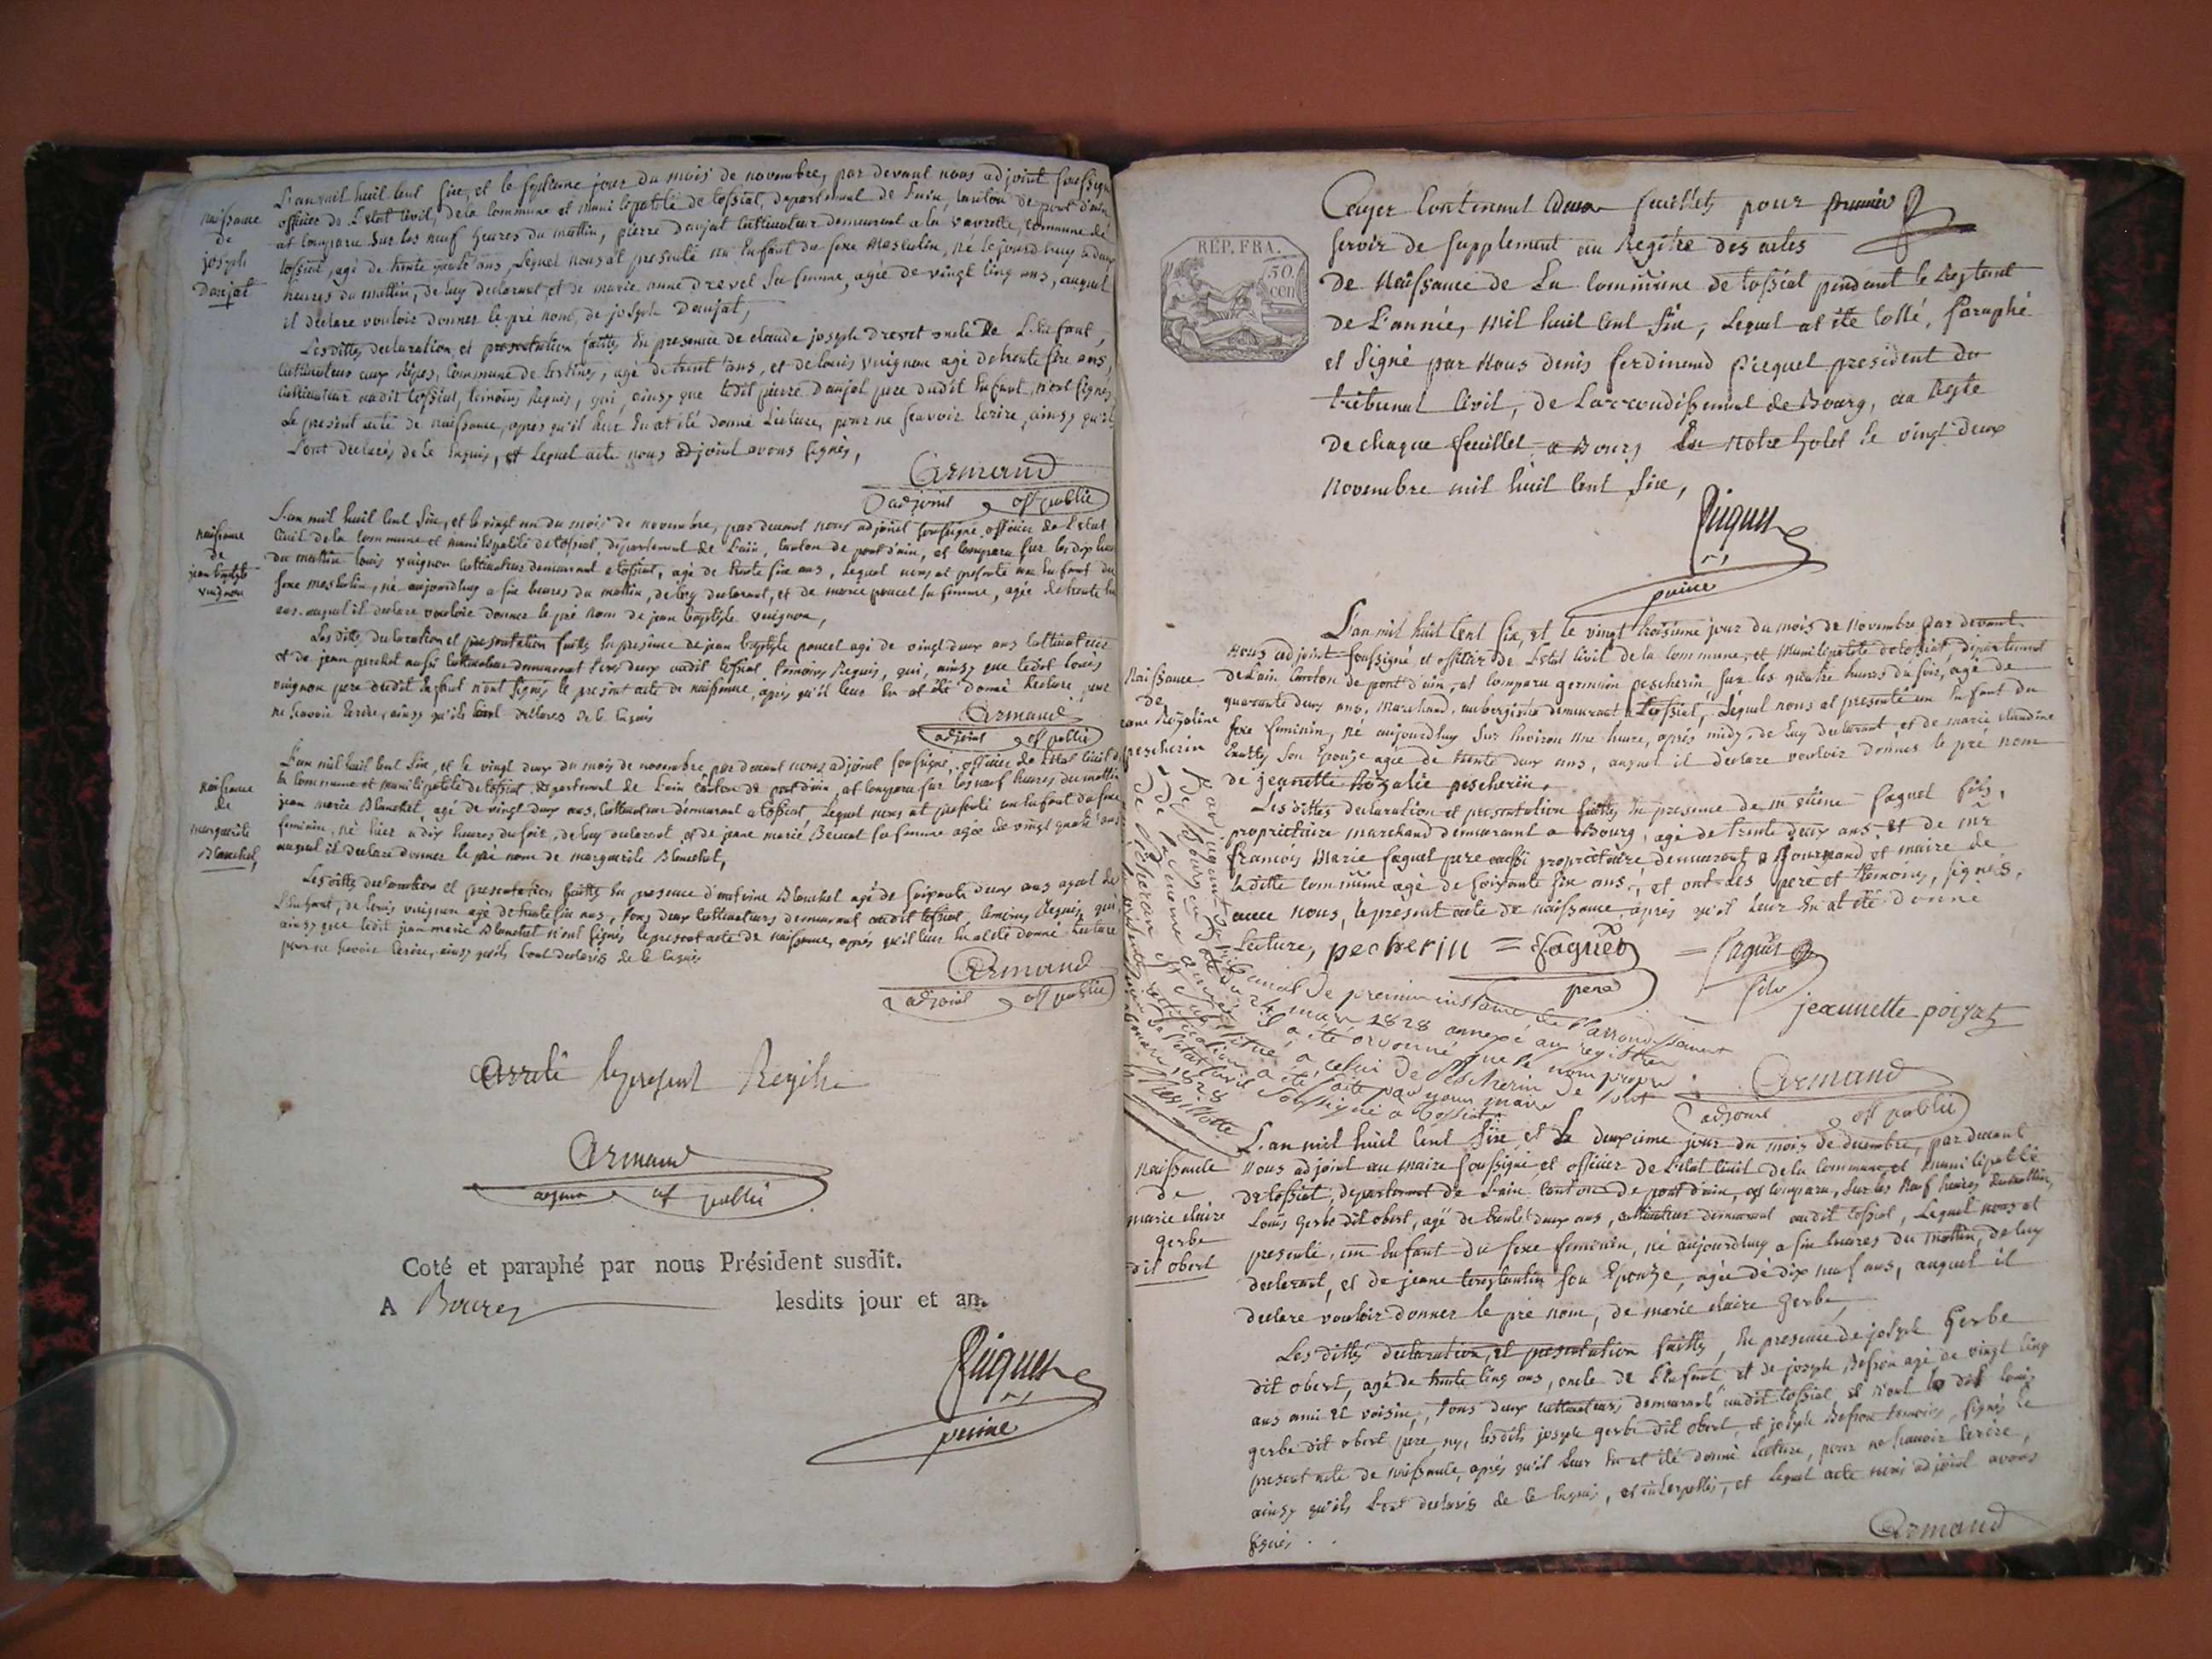 naissance
de
joseph
Danjat
L'an mil huit cent six, et le septieme jour du mois de novembre, par devant nous adjoint soussigné
officier de L'etat Civil, de la commune et municipalité de tossiat, departement de L'ain, canton de pont d'ain,
at comparu sur les neuf heures du mattin, pierre Danjat cultivateur demeurant a la vavrette, commune de
tossiat, agé de trente ans, Lequel nous at presenté un Enfant du sexe masculin, né le jourd'huy a deux
heures du mattin, de luy declarant et de marie anne Drevet sa femme, agée de vingt cinq ans, auquel
il declare vouloir donner le pré nom, de joseph Danjat,
Les dittes declaration et presentation faittes En presence de claude joseph Drevet oncle de L'Enfant,
cultivateur aux Ripes, commune de Certines, agé de trent ans, et de Louis vuignon agé de trente six ans,
cultivateur audit tossiat, temoins Requis, qui, ainsy que ledit pierre Danjat pere dudit Enfant, n'ont signés
Le present acte de naissance, apres qu'il leur En at été donné Lecture, pour ne sçavoir Ecrire, ainsy qu'ils
L'ont declarés de ce Enquis, et Lequel acte nous adjoint avons signés,
Armand
adjoint off public
naissance
de
jean baptiste
vuignon
L'an mil huit cent six, et le vingt un du mois de novembre, par devant nous adjoint soussigné officier de L'etat
Civil de la commune et municipalité de tossiat, departement de L'ain, canton de pont d'ain, at comparu sur les dix heures
du mattin louis vuignon cultivateur demeurant a tossiat, agé de trente six ans, Lequel nous at presenté un Enfant du
sexe masculin, né aujourdhuy a six heures du mattin, de luy declarant, et de marie poncet sa femme, agée de trente
ans, auquel il declare vouloir donner le pré nom de jean baptiste vuignon,
Les dittes declaration et presentation faittes En presence de jean baptiste poncet agé de vingt deux ans cultivateur
et de jean perchet aussi cultivateur demeurant tous deux audit tossiat, temoins Requis, qui, ainsy que ledit louis
vuignon pere dudit Enfant n'ont signés le present acte de naissance, après qu'il leur En at été donné Lecture, pour
ne scavoir Ecrire, ainsy qu'ils L'ont declarés de ce Enquis
Armand
adjoint off public
naissance
de
marguerite
Blanchet,
L'an mil huit cent six, et le vingt deux du mois de novembre, par devant nous adjoint soussigné, officier de L'etat Civil de
la commune et municipalité de tossiat, departement de L'ain canton de pont d'ain, at comparu sur les neuf heures du mattin
jean marie Blanchet, agé de vingt deux ans, cultivateur demeurant a tossiat, Lequel nous at presenté un Enfant du sexe
feminin, né hier a dix heures du soir, de luy declarant, et de jeane marie sa femme agée de vingt quatre ans
auquel il declare donner le pré nom de marguerite Blanchet,
Les dittes declaration et presentation faittes En presence d'antoine Blanchet agé de soixante deux ans ayeul de
L'Enfant, de louis vuignon agé de trente six ans, tous deux cultivateurs demeurant audit tossiat, temoins Requis, qui,
ainsy que ledit jean marie Blanchet n'ont signés le present acte de naissance, après qu'il leur En at été donné Lecture
pour ne scavoir Ecrire, ainsy qu'ils L'ont declarés de ce Enquis
Armand
adjoint off public
Arreté le present Registre
Armand
adjoint off public
Coté et paraphé par nous Président susdit.
A Bourg lesdits jour et an.
Picquet
REP. FRA.
50. cen
Cayer Contenant deux feuillets pour
servir de supplement au Registre des actes
de Naissance de La commune de tossiat pendant le Restant
de L'année, mil huit cent six, Lequel at été Cotté, Paraphé
et signé par Nous denis ferdinand Picquet president du
tribunal Civil, de L'arrondissement de Bourg, au Reste
de chaque feuillet a Bourg En Notre hotel le vingt deux
Novembre mil huit cent six,
Picquet
Naissance
de
Jeane Rozaline
pescherin
L'an mil huit cent six, et le vingt troisieme jour du mois de novembre par devant
nous adjoint soussigné et officier de L'etat Civil de la commune, et municipalité de tossiat, departement
de L'ain Canton de pont d'ain, at comparu germain pescherin, sur les quatre heures du soir, agé de
quarante deux ans, marchand, aubergiste demeurant a tossiat, Lequel nous at presenté un Enfant du
sexe feminin, né aujourdhuy sur Environ une heure, après midy, de luy declarant et de marie claudine
son Epouze agée de trente deux ans, auquel il declare vouloir donner le pré nom
de jeanette Rozalie pescherin,
Les dittes declaration et presentation faittes En presence de m faguet fils,
proprietaire marchand demeurant a Bourg, agé de trente deux ans, et de mr
francois Marie faguet pere aussi proprietaire demeurant a Journand, et maire de
la ditte commune agé de soixante six ans, et ont les pere et temoins, signés,
avec nous, le present acte de naissance, après qu'il leur En at été donné
Lecture, pecherin = faguet = faguet
pere fils
jeannette poizat
Armand
adjoint off public
Par jugement du tribunal de premiere instance de l'arrondissement
de Bourg en date du 24 mars 1828 annexé au registre
de la meme année il a été ordonné que le nom propre
de Pecherin est substitué à celui de Pescherin
rectification a été faite par nous maire
de l'etat civil soussigné a tossiat
1828
naissance
de
marie claire
gerbe
dit obert
L'an mil huit cent six, et Le deuxieme jour du mois de decembre, par devant
Nous adjoint au maire soussigné, et officier de L'etat Civil de la commune et municipalité
de tossiat, departement de L'ain, canton de pont d'ain, at comparu, sur les Neuf heures du mattin,
Louis gerbe dit obert, agé de trente deux ans, cultivateur demeurant audit tossiat, Lequel nous at
presenté, un Enfant du sexe feminin, né aujourdhuy a six heures du mattin, de luy
declarant, et de jeane son Epouze, agée de dix neuf ans, auquel il
declare vouloir donner le pré nom, de marie claire Gerbe,
Les dittes declaration, et presentation faittes, En presence de joseph Gerbe
dit obert, agé de trente cinq ans, oncle de L'Enfant et de joseph Besson agé de vingt cinq
ans ami et voisin, tous deux cultivateurs demeurants audit tossiat, et n'ont le dit louis
gerbe dit obert pere, ny, lesdits joseph gerbe dit obert, et joseph Besson temoins, signés le
present acte de naissance, après qu'il leur En at été donné Lecture, pour ne scavoir Ecrire,
ainsy qu'ils L'ont declarés de ce Enquis, et interpellés, et Lequel acte nous adjoint avons
signés.
Armand